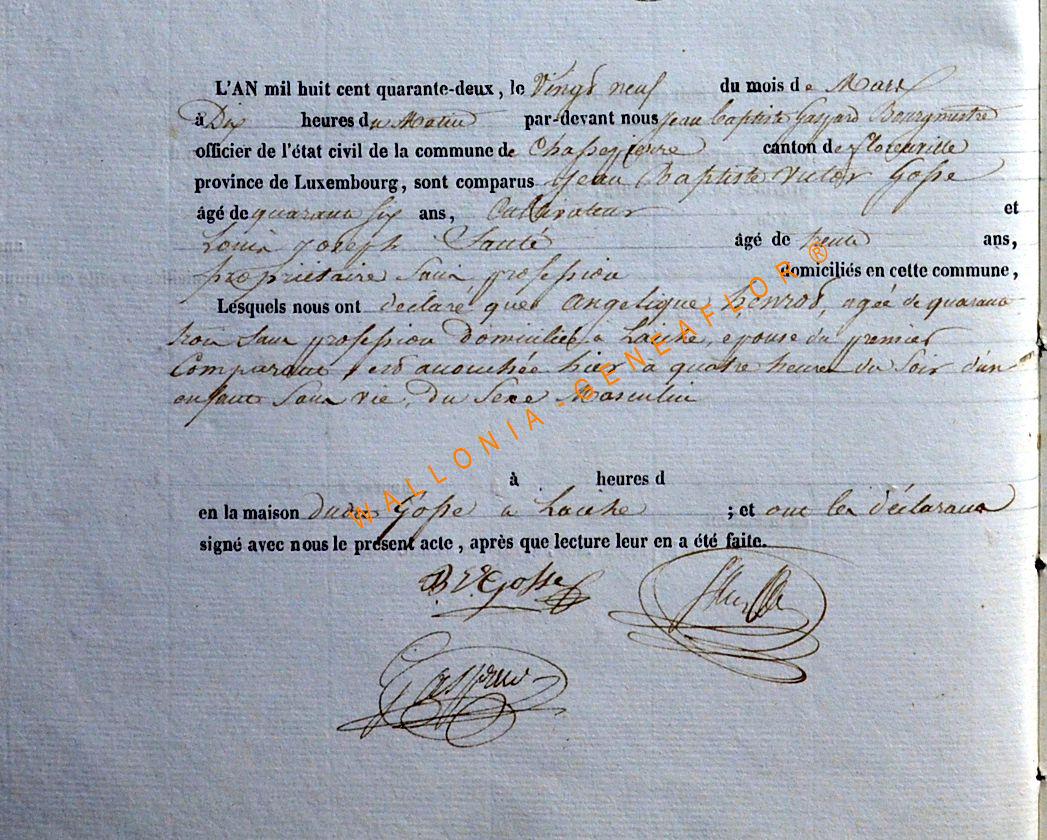 L'AN mil huit cent quarante-deux, le Vingt neuf du mois de Mars
à Dix heures du Matin par-devant nous Jean Baptiste Gaspard Bourgmestre
officier de l'état civil de la commune de Chassepierre canton de Florenville
province de Luxembourg, sont comparus Jean Baptiste Victor Gosse
âgé de quarante six ans, Cultivateur et
Louis Joseph âgé de trente ans,
propriétaire Sans profession domiciliés en cette commune,
Lesquels nous ont declaré que Angelique Henrot, agée de quarante
trois Sans profession domiciliée à Laiche, epouse du premier
Comparant, est accouchée hier a quatre heures du Soir d'un
enfant Sans vie, du Sexe Masculin
à heures d
en la maison dudit Gosse a Laiche ; et ont les déclarans
signé avec nous le présent acte, après que lecture leur en a été faite.
Gosse
WALLONIA-GENEAFLOR ®